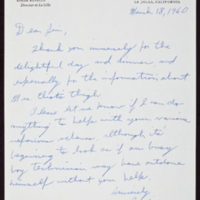 LA JOLLA, CALIFORNIA
March 18, 1960
Dear Jon,
Thank you immensely for the
delightful day and dinner, and
especially for the information about
Please let me know if I can do
anything to help with your various
schemes, although to
beginning to look as if our busy
boy technician may have outdone
himself without your help.
Sincerely,